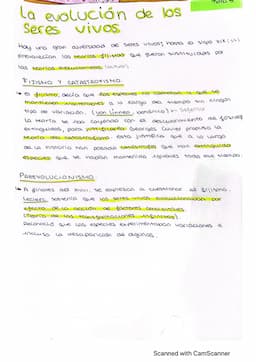 La evolución de los
seres vivos
Hay una gran diversidad de seres vivos, hasta el siglo XIX
predominaban las teorías fijistas que fueron sustituidas por
las teorías evolucionistas
FIJISMO Y CATASTROFISMO
El fijismo, decía que las especies
mantienen a lo largo del tiempo sin ningún
tipo de variación. (Von Linneo, científico)
la teoría se vio con el descubrimiento de fósiles
extinguidos, para Georges Cuvier propuso la
teoría del catastrofismo esta que a lo largo
de la historia han pasado que han extinguido
especies que se mantenido iguales todo ese tiempo.
PREEVOLUCIONISMO
A finales del XVIII, se empezaba a cuestionar al fijismo.
Leclerc sostenía que los seres vivos evolucionaban por
efecto de la acción de factores ambientales
(teoría de las transformaciones infinitas)
Reconoció que las especies experimentaban variaciones e
incluso la desaparición de algunos.
Scanned with CamScanner